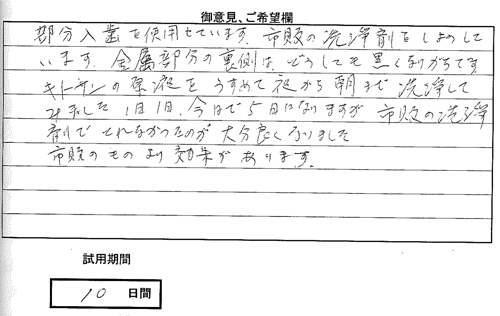 御意見、ご希望欄
部分入歯を使用せています。市販の洗浄剤をしようして
います。金属部分の裏側は、どうしても黒くなりがちです
キトサンの原液をうすめて夜から朝まで洗浄して
みました 1日1回、今日で5日になりますが市販の洗浄
剤でとれなかったのが大分良くなりました
市販のものより効果があります。
試用期間
10 日間